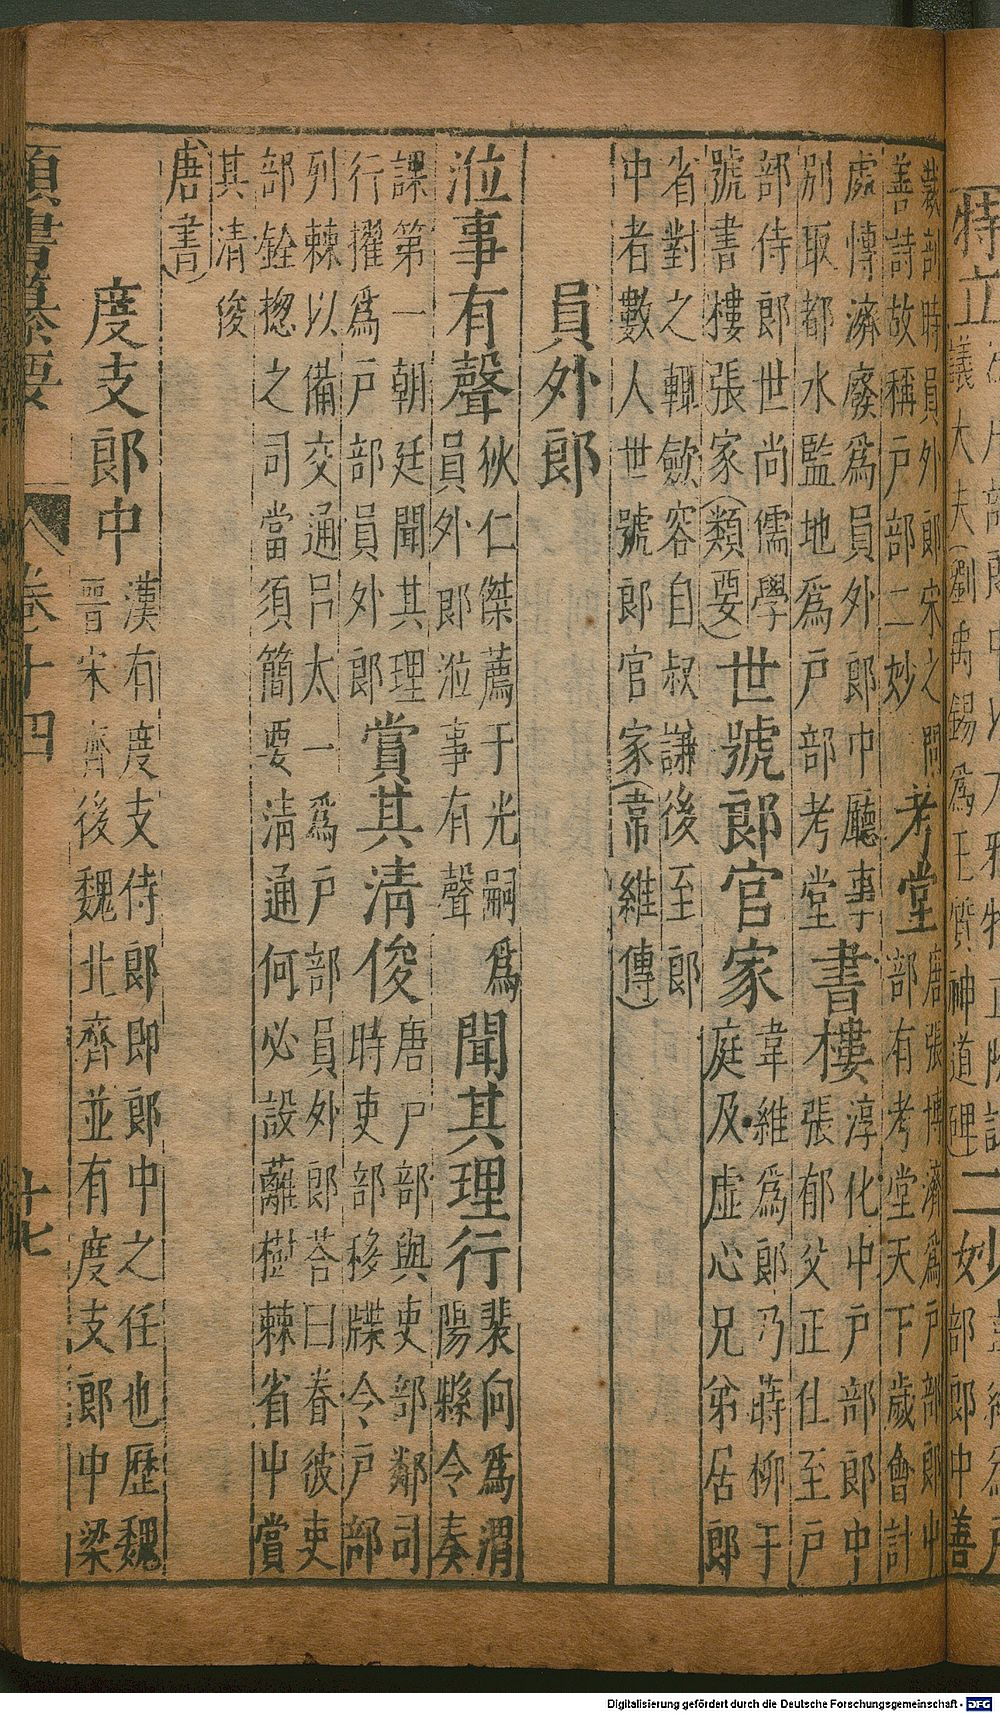 特立
議大夫(劉禹錫為王質神道碑)
二妙
部郎中善
時員外郎宋之問
善詩故稱戶部二妙
考堂
唐張博濟為戶部郎中
部有考堂天下歲會計
處愽濟廢為員外郎中廳事
別取都水監地為戶部考堂
書樓
淳化中戶部郎中
張郁父正仕至戶
部侍郎世尚儒學
號書樓張家(類要)
世號郎官家
韋維為郎乃蒔柳于
庭及虛心兄弟居郎
省對之輒歛容自叔謙後至郎
中者數人世號郎官家(韋維傳)
員外郎
涖事有聲
狄仁傑薦于光嗣為
員外郎涖事有聲
聞其理行
裴向為渭
陽縣令奏
課第一朝廷聞其理
行擢為戶部員外郎
賞其清俊
唐尸部與吏部鄰司
時吏部移牒令戶部
列棘以備交通呂太一為戶部員外郎荅曰眷彼吏
部銓揔之司當須簡要清通何必設蘺樹棘省中賞
其清俊
唐書)
度支郎中
漢有度支侍郎即郎中之任也歷魏
晉宋齊後魏北齊並有度支郎中梁
類書纂要 卷十四 十七
Digitalisierung gefördert durch die Deutsche Forschungsgemeinschaft - DFG